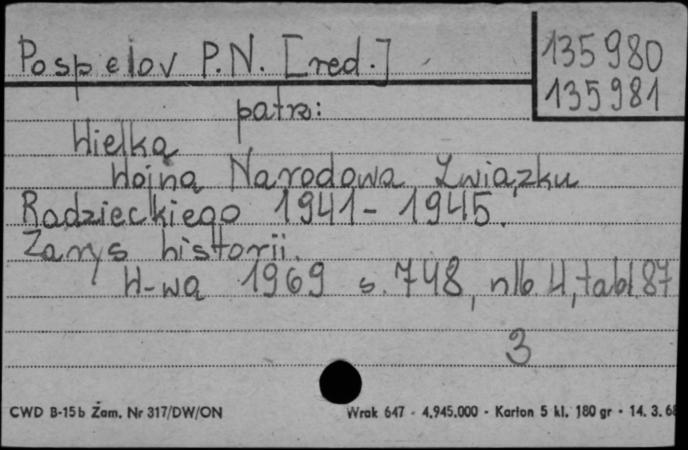 Pospelov P.N. [red.]
135980
135981
patrz:
Wielka
Wojna Narodowa Związku
Radzieckiego 1941-1945.
Zarys historii.
W-wa 1969 s. 748, nlb. 4, tabl. 87
3
CWD B-15b Zam. Nr 317/DW/ON
Wrak 647 - 4.945.000 - Karton 5 kl. 180 gr - 14. 3. 68